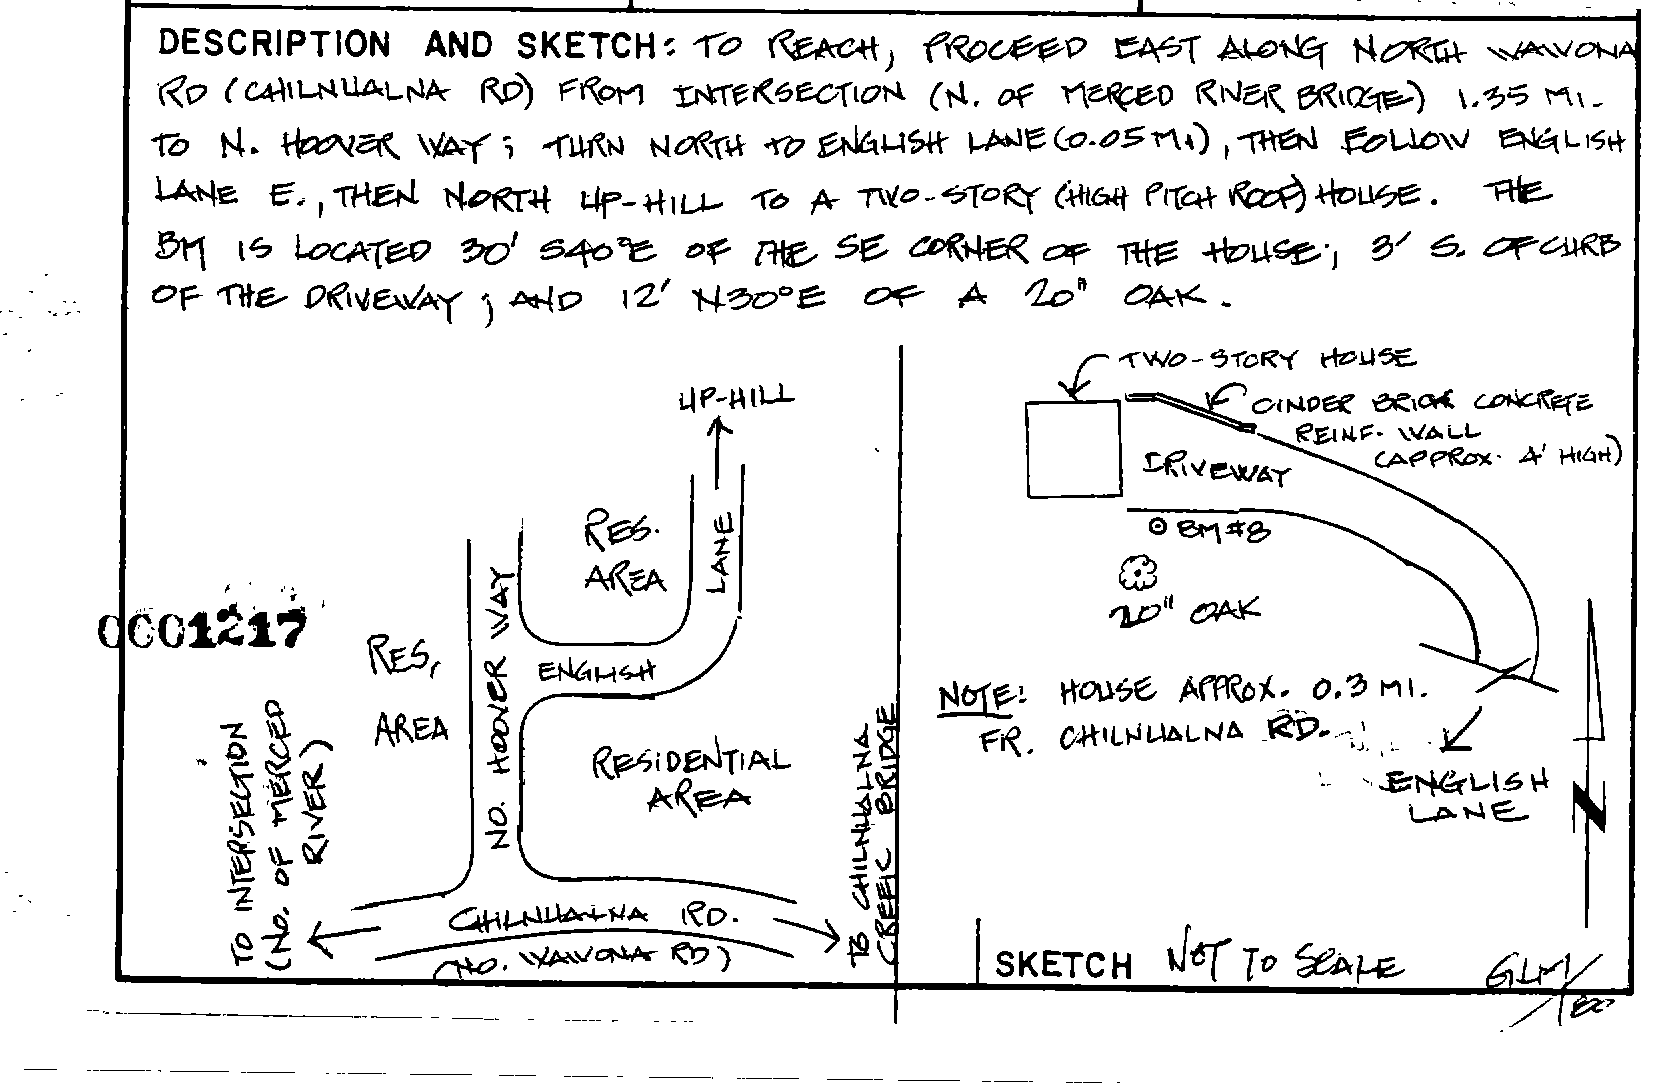 DESCRIPTION AND SKETCH: TO REACH, PROCEED EAST ALONG NORTH WAWONA
RD (CHILNUALNA RD) FROM INTERSECTION (N. OF MERCED RIVER BRIDGE) 1.35 MI.
TO N. HOOVER WAY; TURN NORTH TO ENGLISH LANE (0.05 MI), THEN FOLLOW ENGLISH
LANE E., THEN NORTH UP-HILL TO A TWO-STORY (HIGH PITCH ROOF) HOUSE. THE
BM IS LOCATED 30' S40°E OF THE SE CORNER OF THE HOUSE; 3' S. OF CURB
OF THE DRIVEWAY; AND 12' N30°E OF A 20" OAK.
UP-HILL
RES.
AREA
LANE
ENGLISH
NO. HOOVER WAY
RES.
AREA
RESIDENTIAL
AREA
0001217
TO INTERSECTION
(NO. OF MERCED
RIVER)
CHILNUALNA RD.
(NO. WAWONA RD)
TO CHILNUALNA
CREEK BRIDGE
TWO-STORY HOUSE
CINDER BRICK CONCRETE
REINF. WALL
(APPROX. 4' HIGH)
DRIVEWAY
BM #8
20" OAK
NOTE: HOUSE APPROX. 0.3 MI.
FR. CHILNUALNA RD.
ENGLISH
LANE
N
SKETCH NOT TO SCALE
GLM/80